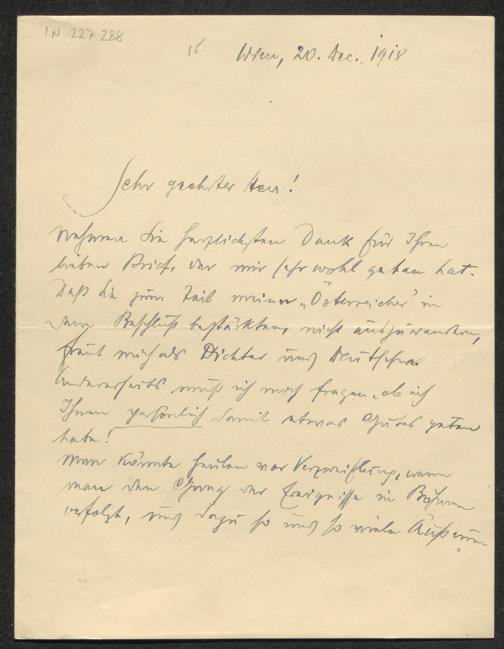 I.N. 227.288
15
Wien, 20. Dec. 1918
Sehr geehrter Herr!
Nehmen Sie herzlichsten Dank für Ihren
lieben Brief, der mir sehr wohl getan hat.
Daß Sie zum Teil meine „Österreicher" in
dem Beschluß bestärkten, nicht auszuwandern,
freut mich als Dichter und Deutschen.
Andererseits muß ich mich fragen, ob ich
Ihnen persönlich damit etwas Gutes getan
habe!
Man könnte heulen vor Verzweiflung, wenn
man den Gang der Ereignisse in Böhmen
verfolgt, und dazu so und so viele